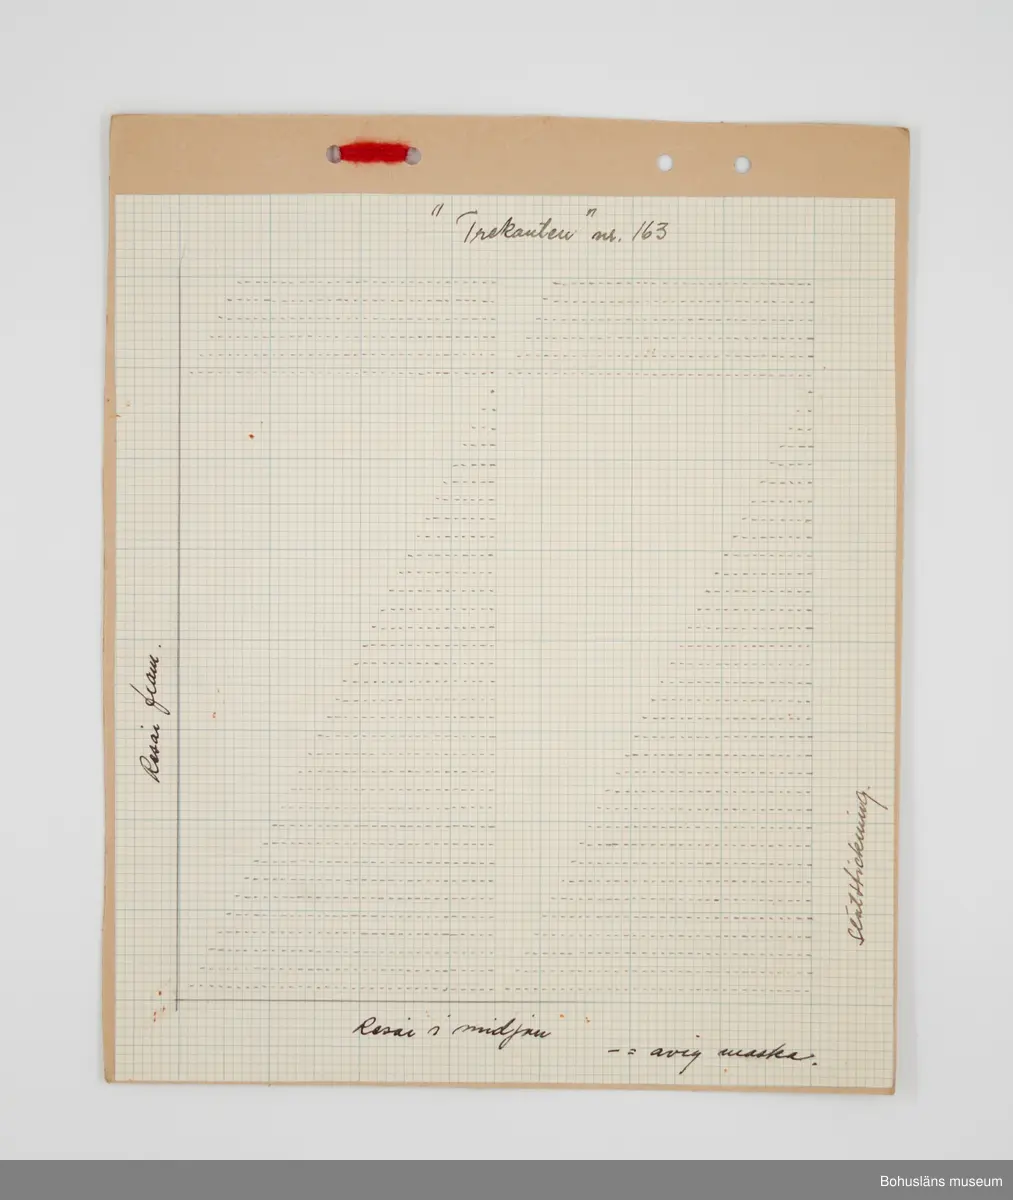 "Trekanten" nr. 163
Resår fram.
Slätstickning.
Resår i midjan
- = avig maska.
Bohusläns museum